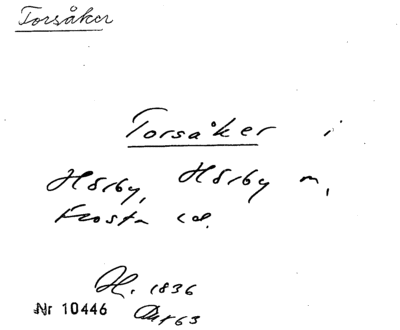 Torsåker
Torsåker i
Hörby, Hörby m,
Frosta
H. 1836
Nr 10446